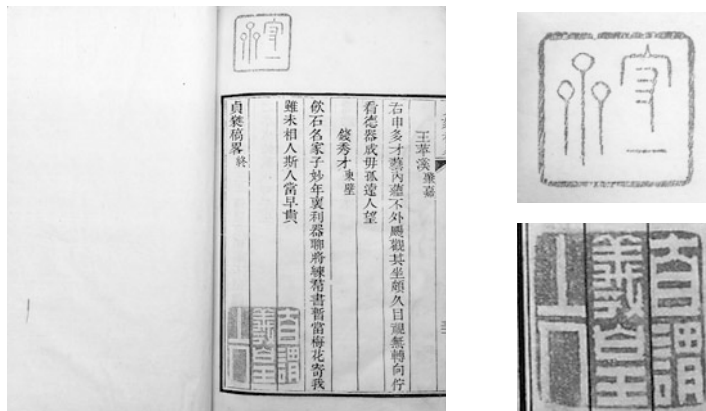 右申多才藝內蘊不外颺觀其坐頗久目覩無轉向佇
看德器成毋孤遠人望
錢秀才東壁
石名家子妙年裏利器聊將練帬書暫當梅花寄我
雖未相人斯人當早貴
貞蕤稿畧終
自謂
羲皇
上人